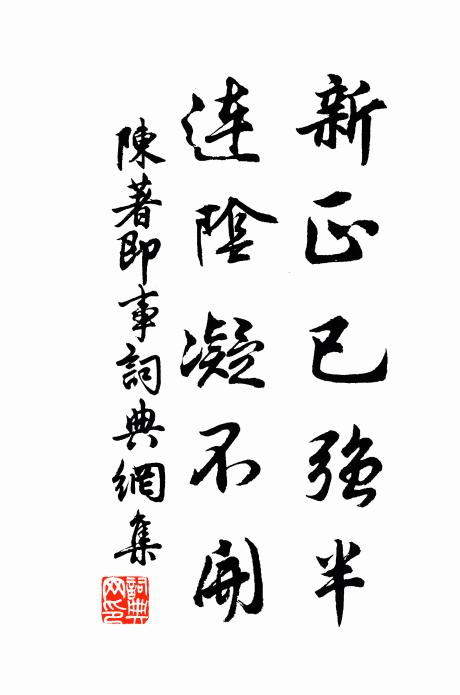 新正已強半
連陰凝不開
陳著即事詞典網集
詞典網印